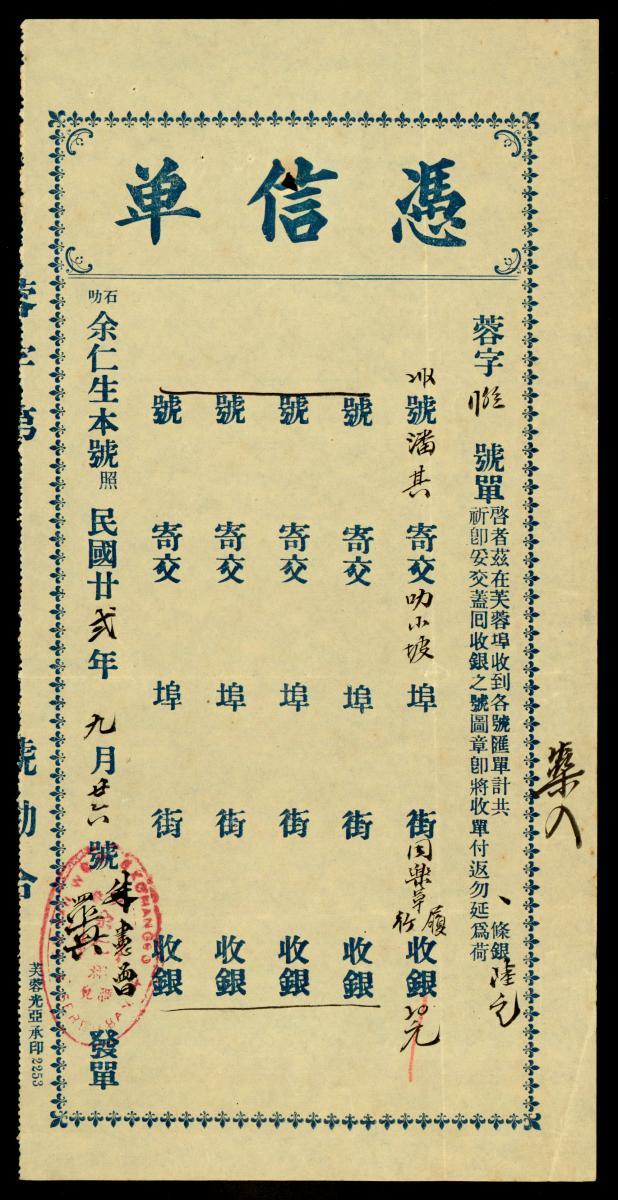 憑信单
蓉字 號單
啓者茲在芙蓉埠收到各號匯單計共、條銀陸元
祈卽妥交蓋回收銀之號圖章卽將收單付返勿延爲荷
號潘其寄交叻小坡埠 街同樂草履行收銀 元
號 寄交 埠 街 收銀
號 寄交 埠 街 收銀
號 寄交 埠 街 收銀
號 寄交 埠 街 收銀
石叻余仁生本號照 民國廿弐年九月廿六號 發單
芙蓉光亞承印 2253
蓉字第 號